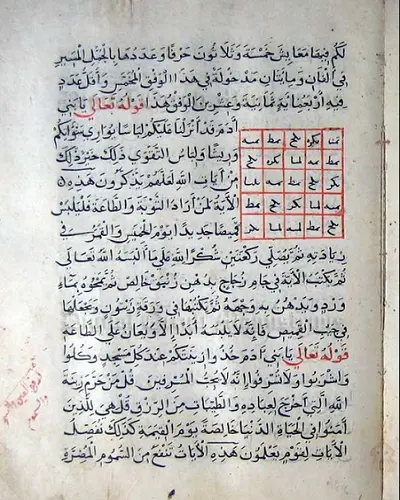 لكم فيها معايش خمسة وثلاثون حرفا وعددها بالجمل الكبير
في ألفان ومائتان مدخولة في هذا الوفق المخمس وأقل عدد
فيه أربعمائة ثمانية وعشرين الوفق هذا قوله تعالى يا بني
آدم قد أنزلنا عليكم لباسا يواري سوآتكم
وريشا ولباس التقوى ذلك خير ذلك
من آيات الله لعلهم يذكرون هذه
الآية لمن أراد التوبة والطاعة فليلبس
قميصا جديدا يوم الخميس والقمر في
زيادته ثم يصلي ركعتين شكرا لله على ما ألبسه الله تعالى
ثم يكتب الآية في جام زجاج بدهن زنبق خالص ثم يمحوه بماء
ورد ويدهن به وجهه ثم يكتبها في ورقة زيتون ويجعلها
في جيب القميص فإنه لا يلبسه أبدا إلا ويعان على الطاعة
قوله تعالى يا بني آدم خذوا زينتكم عند كل مسجد وكلوا
واشربوا ولا تسرفوا إنه لا يحب المسرفين قل من حرم زينة
الله التي أخرج لعباده والطيبات من الرزق قل هي للذين
آمنوا في الحياة الدنيا خالصة يوم القيمة كذلك نفصل
الآيات لقوم يعلمون هذه الآيات تنفع من السموم المضرة